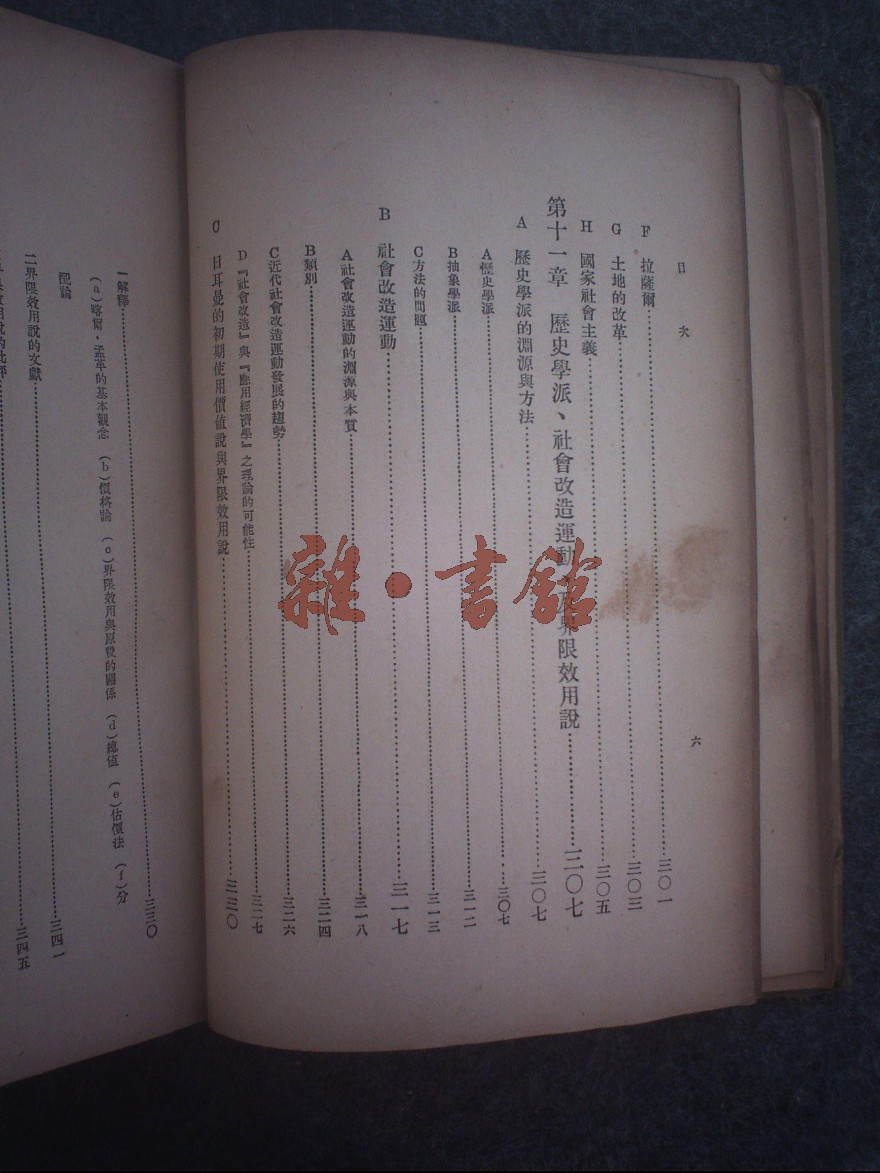 目次
六
F 拉薩爾……三〇一
G 土地的改革……三〇三
H 國家社會主義……三〇五
第十一章 歷史學派、社會改造運動、及界限效用說……三〇七
A 歷史學派的淵源與方法……三〇七
A歷史學派……三〇七
B抽象學派……三一二
C方法的問題……三一三
B 社會改造運動……三一七
A社會改造運動的淵源與本質……三一八
B類別……三二四
C近代社會改造運動發展的趨勢……三二六
D『社會改造』與『應用經濟學』之理論的可能性……三二七
C 日耳曼的初期使用價值說與界限效用說……三三〇
一解釋……三三〇
(a)喀爾·孟革的基本觀念 (b)價格論 (c)界限效用與原費的關係 (d)總值 (e)估價法 (f)分
配論
二界限效用說的文獻……三四一
界限效用說的批評……三四五
雜·書館